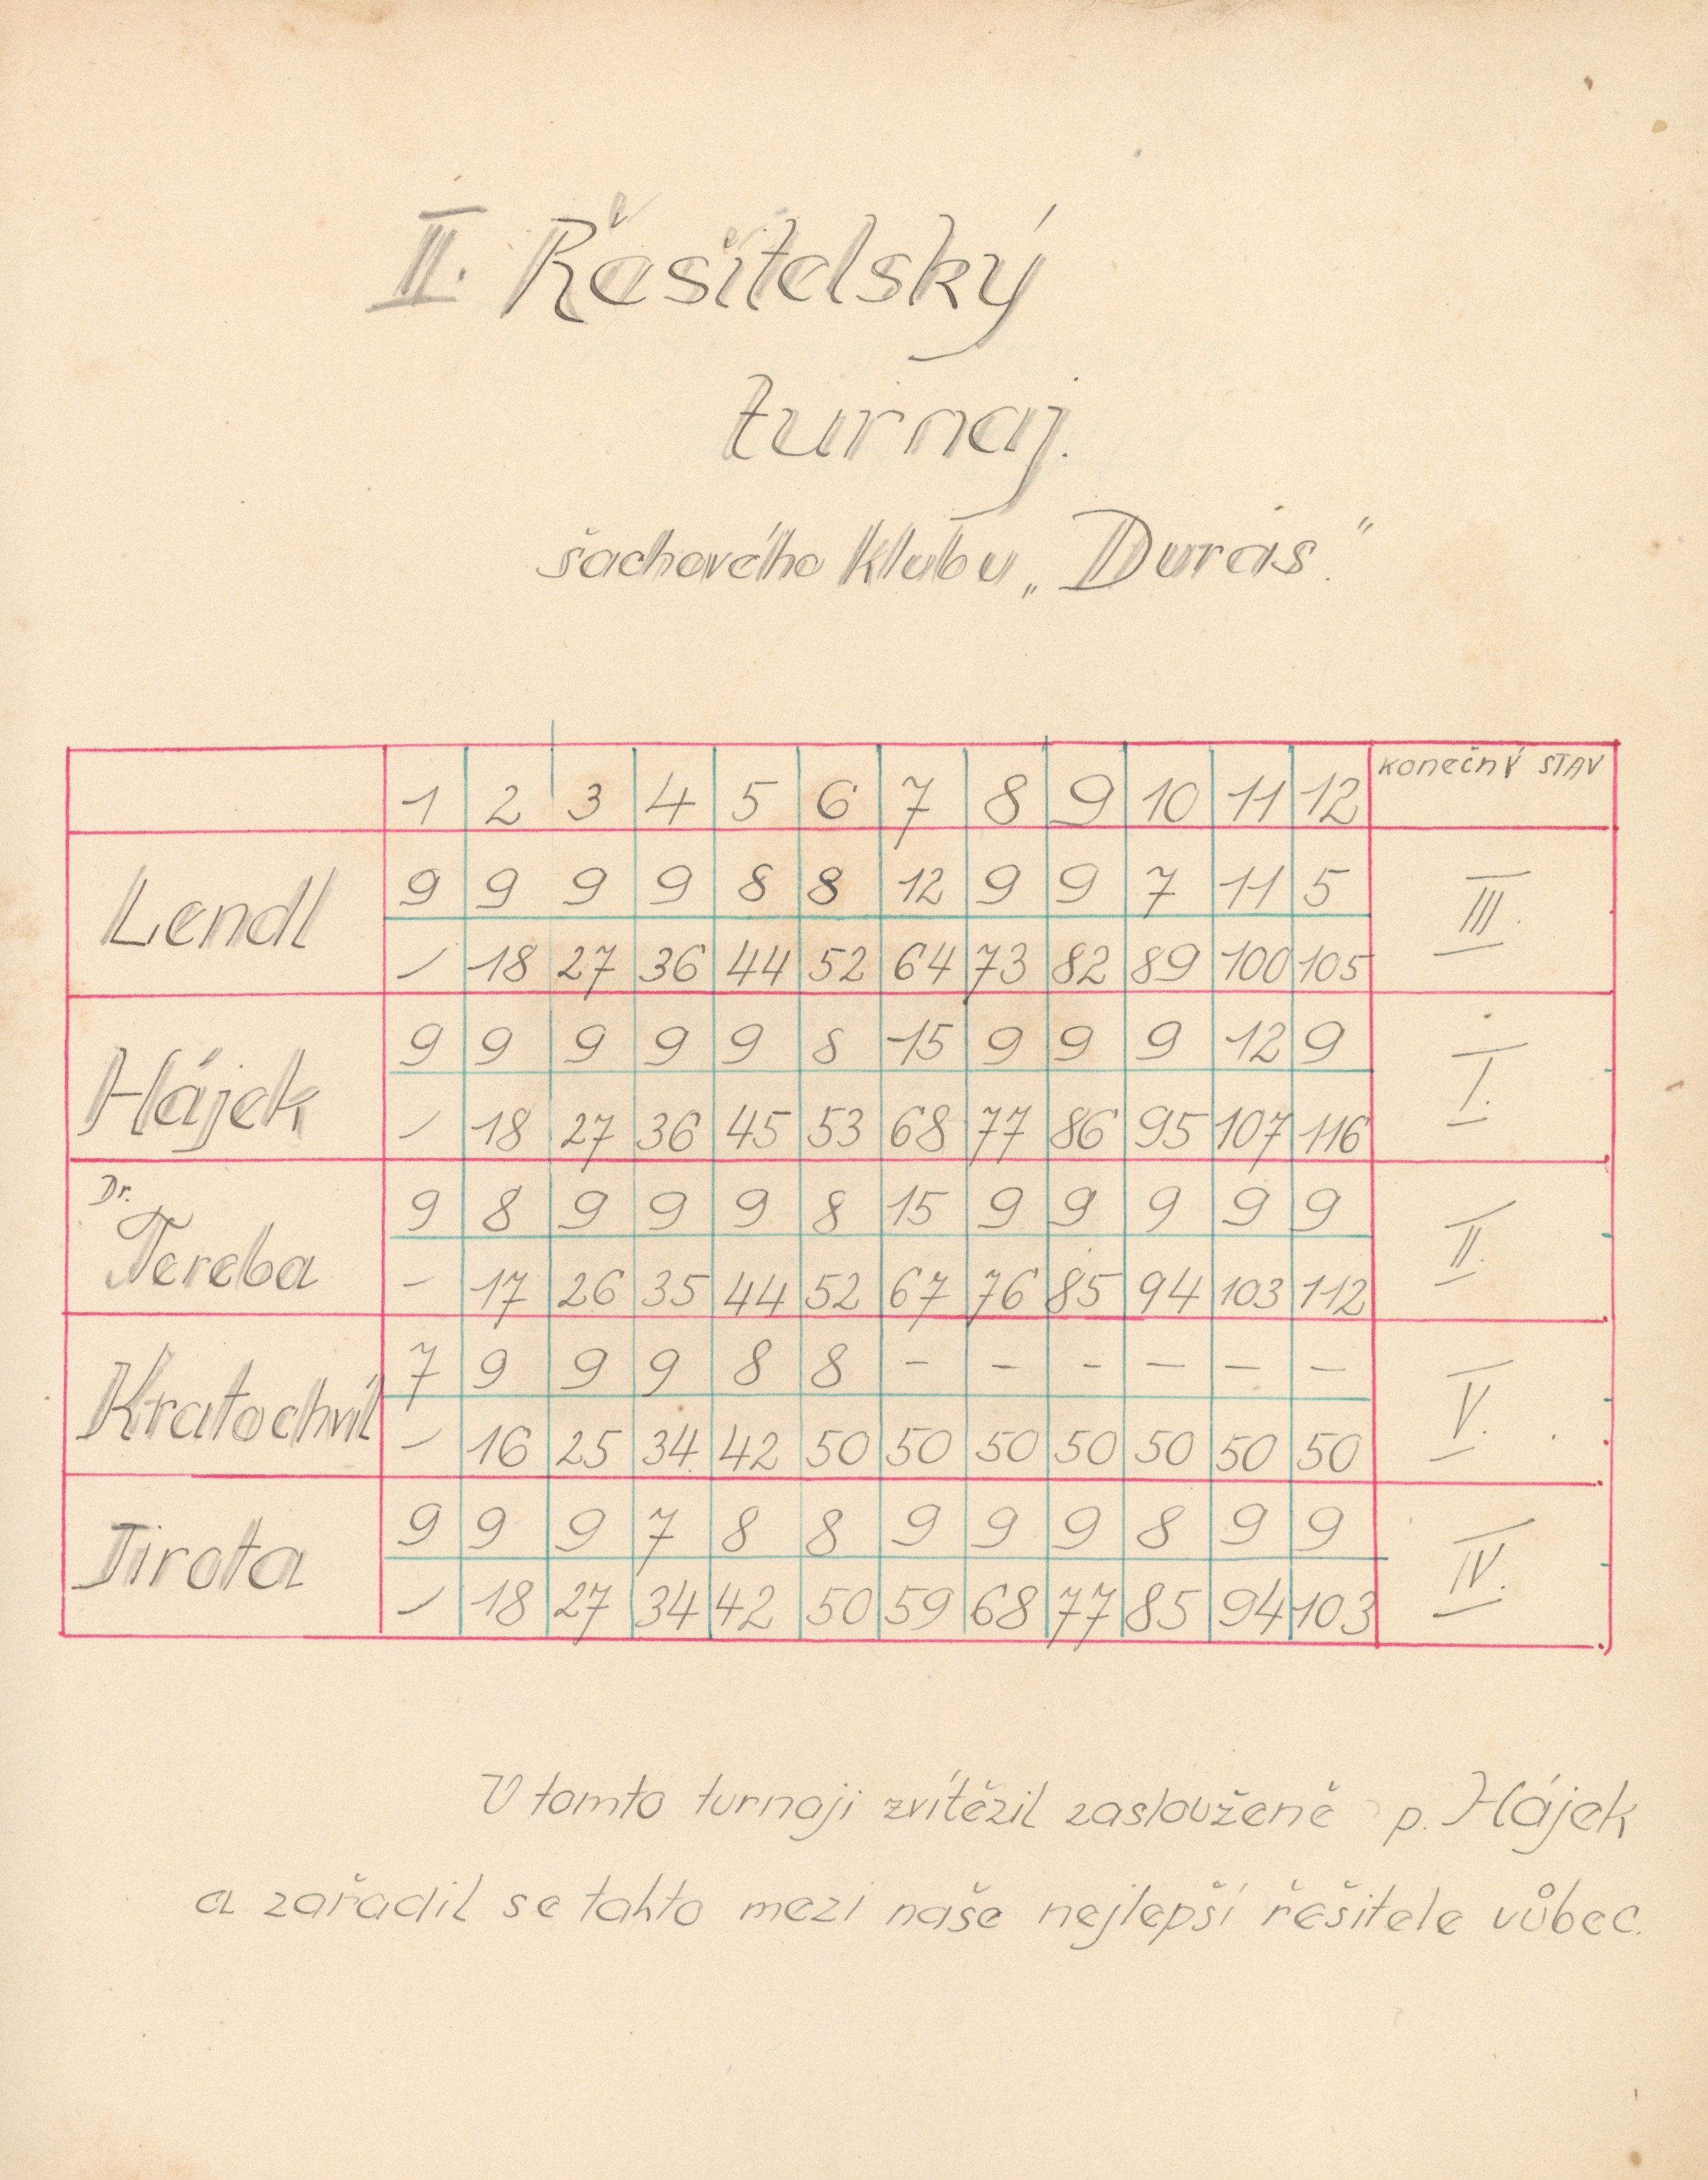 II. Řešitelský
turnaj.
šachového klubu „Duras."
1 2 3 4 5 6 7 8 9 10 11 12 KONEČNÝ STAV
Lendl 9 9 9 9 8 8 12 9 9 7 11 5 III.
– 18 27 36 44 52 64 73 82 89 100 105
Hájek 9 9 9 9 9 8 15 9 9 9 12 9 I.
– 18 27 36 45 53 68 77 86 95 107 116
Dr.
Tereba 9 8 9 9 9 8 15 9 9 9 9 9 II.
– 17 26 35 44 52 67 76 85 94 103 112
Kratochvíl 7 9 9 9 8 8 – – – – – – V.
– 16 25 34 42 50 50 50 50 50 50 50
Jirota 9 9 9 7 8 8 9 9 9 8 9 9 IV.
– 18 27 34 42 50 59 68 77 85 94 103
V tomto turnaji zvítězil zaslouženě p. Hájek
a zařadil se takto mezi naše nejlepší řešitele vůbec.